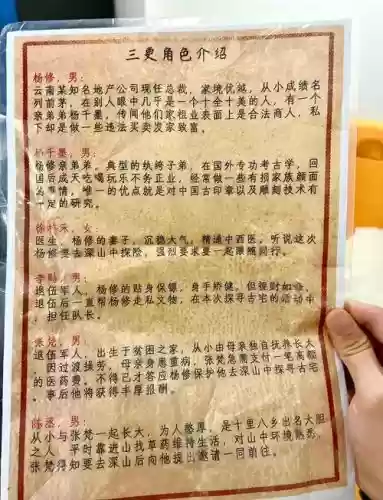 三更角色介绍
杨修，男：
云南某知名地产公司现任总裁，家境优越，从小成绩名
列前茅，在别人眼中几乎是一个十全十美的人，有一个
亲弟弟杨千墨，传闻他们家祖业表面上是合法商人，私
下却是做一些违法买卖发家致富。
杨千墨，男：
杨修亲弟弟，典型的纨绔子弟，在国外专功考古学，回
国后成天吃喝玩乐不务正业，经常做一些有损家族颜面
的事情，唯一的优点就是对中国古印章以及雕刻技术有
一定的研究。
女：
医生，杨修的妻子，沉稳大气，精通中西医，听说这次
杨修要去深山中探险，强烈要求要一起跟随同行。
李，男：
退伍军人，杨修的贴身保镖，身手矫健，但狸财如命，
退伍后一直帮杨修走私文物，在本次探寻古宅的活动中
，担任队长。
张梵，男：
退伍军人，出生于贫困之家，从小由母亲独自抚养长大
，因过渡操劳，母亲身患重病，张梵急需支付一笔高额
的医药费。不得已才答应杨修保护他去深山中探寻古宅
，事后他将获得丰厚报酬。
陈丞，男：
从小与张梵一起长大，为人憨厚，是十里八乡出名大胆
之人，平时靠进山找草药维持生活，对山中环境熟悉，
张梵得知要去深山后向他提出邀请一同前往。